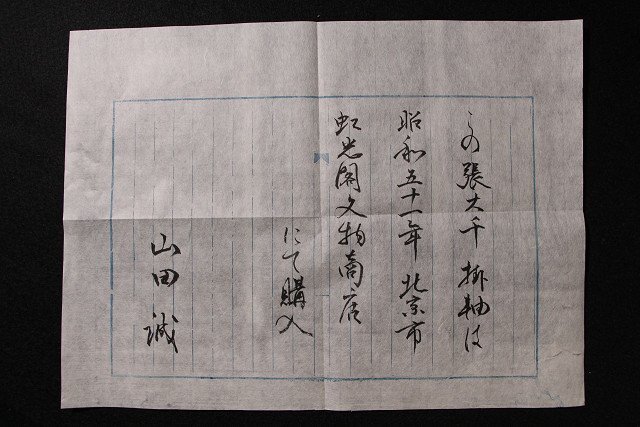 この張大千掛軸は
昭和五十一年北京市
虹光閣文物商店
にて購入
山田誠